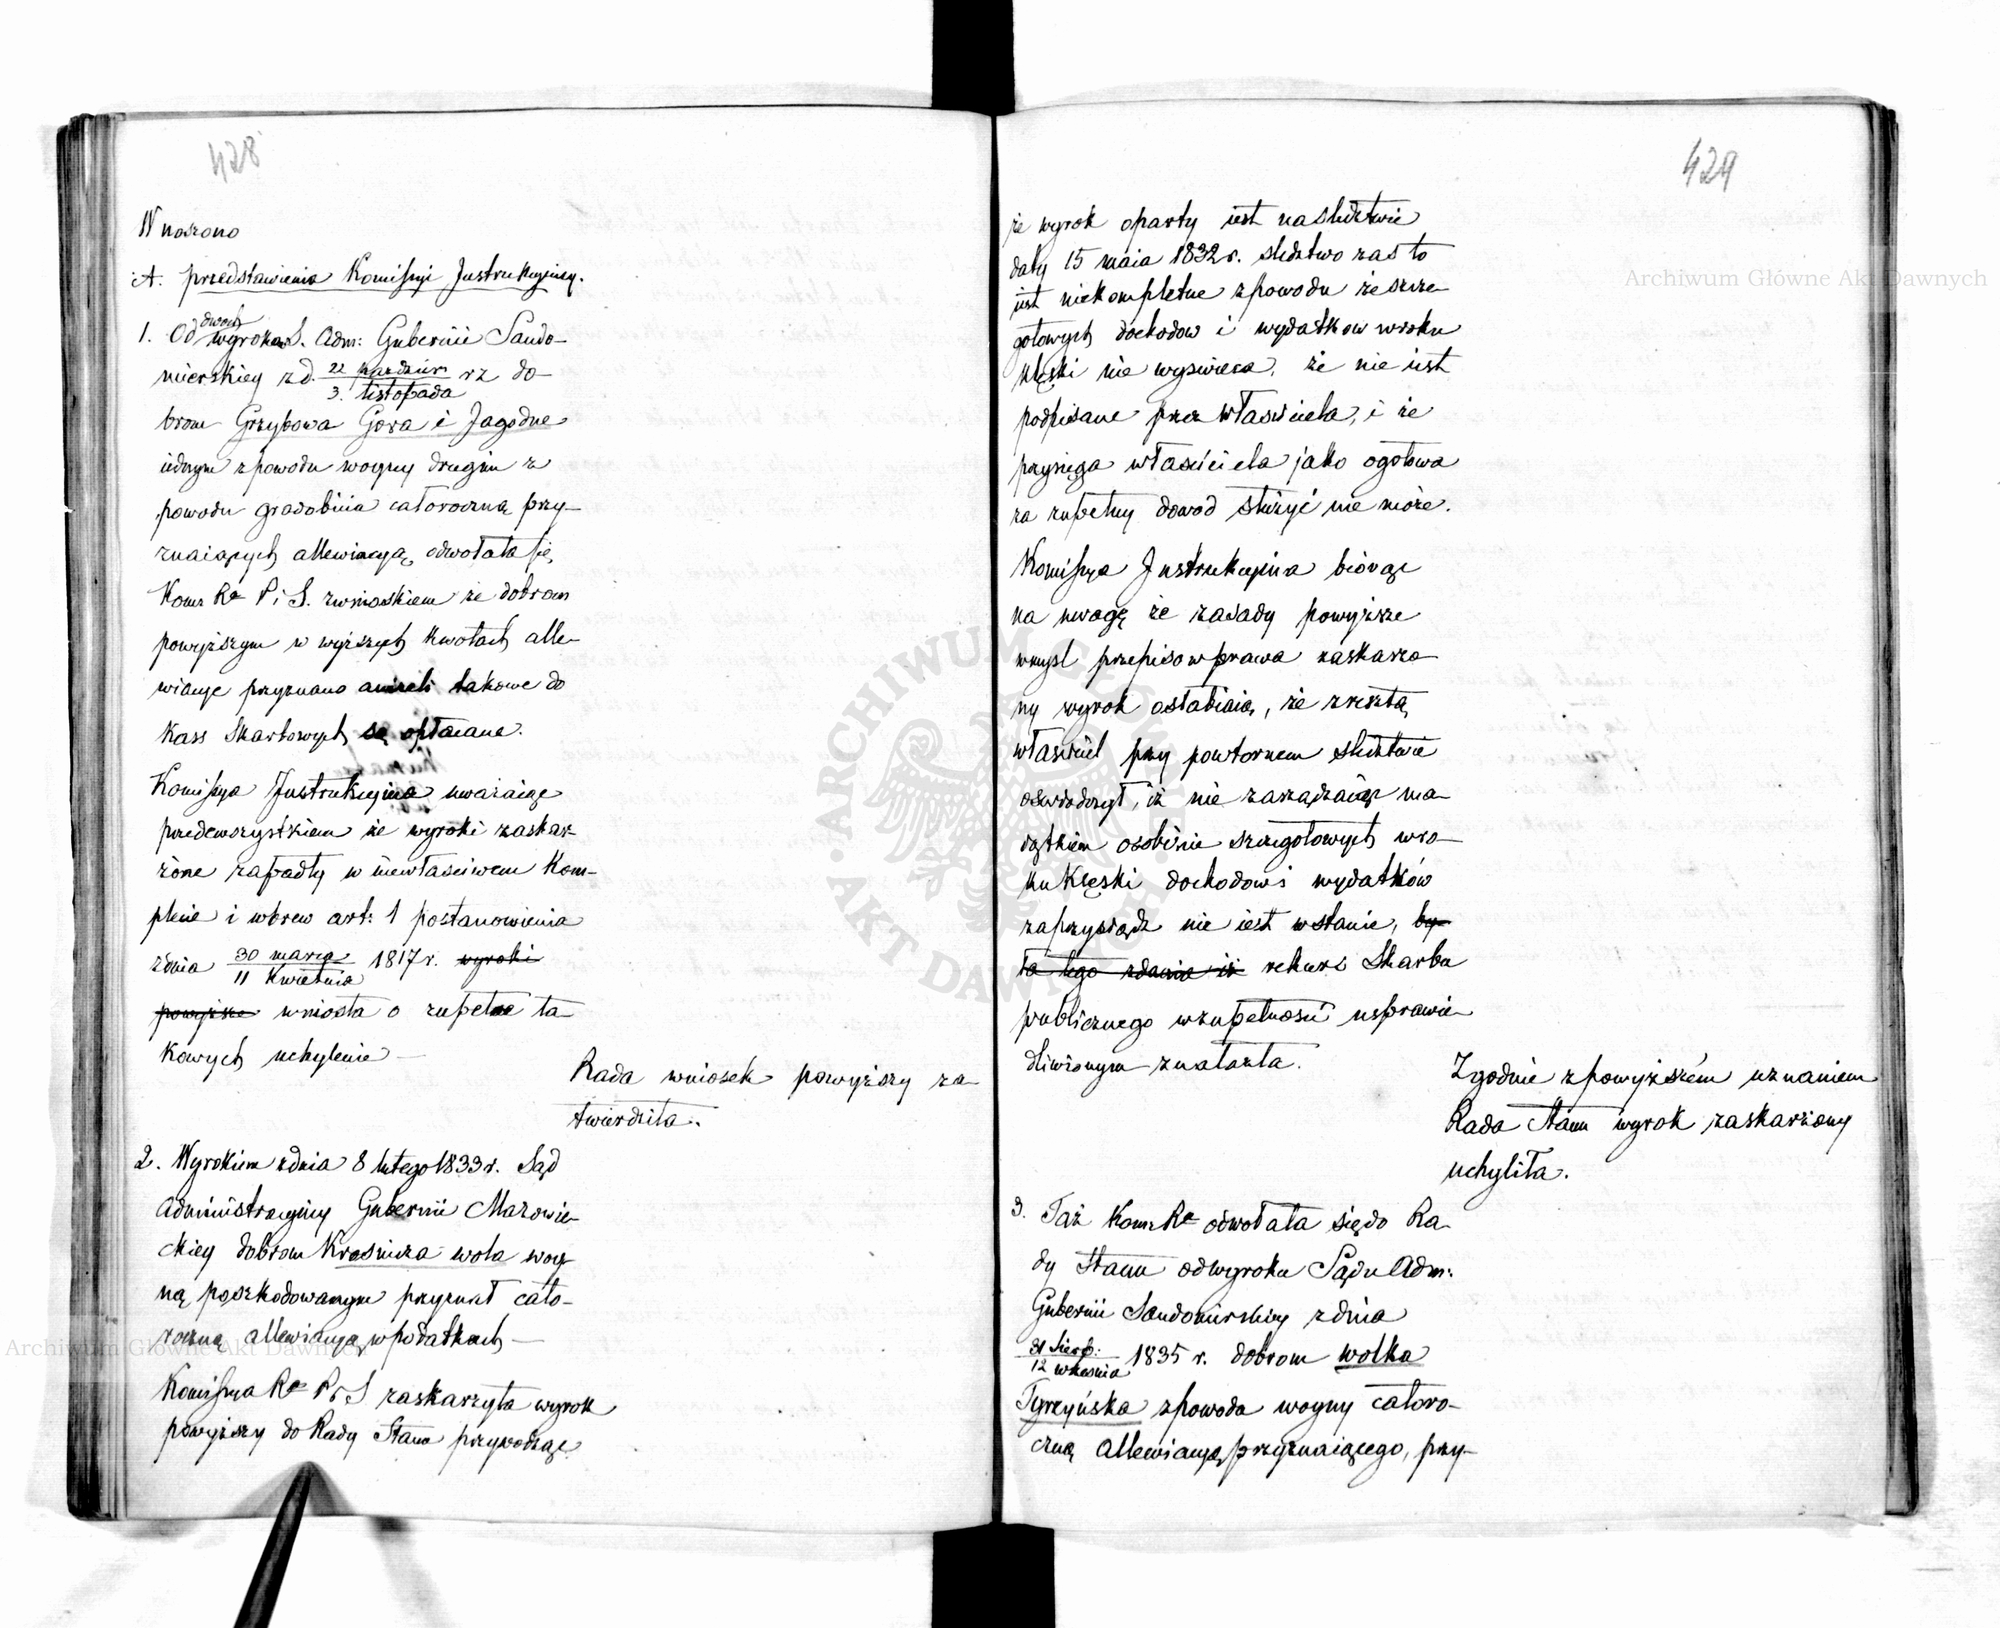 428
Wnoszono
A. przedstawienia Komissyi Instrukcyiney.
dwoch
1. Od wyrokow S. Adm: Gubernii Sando-
mierskiey z d. 22 pazdzier rz do-
3. listopada
brom Grzybowa Gora i Jagodne
iednym z powodu woyny drugim z
powodu gradobicia całoroczną przy-
znaiących allewiacyą, odwołała się
Kom: Rz P. i S. z wnioskiem że dobrom
powyższym w wyższych kwotach alle-
wiacye przyznano aniżeli takowe do
Kass Skarbowych są opłacane.
Komissya Instrukcyina uważaiąc
przedewszystkiem że wyroki zaskar
żone zapadły w niewłaściwem Kom-
plecie i wbrew art: 1 postanowienia
z dnia 30 marca 1817 r. wyroki
11 Kwietnia
powyższe wniosła o zupełne ta
kowych uchylenie —
Rada wniosek powyższy za
twierdziła.
2. Wyrokiem z dnia 8 lutego 1833 r. Sąd
Administracyiny Gubernii Mazowie-
ckiey dobrom Krosnicza wola woy
ną poszkodowanym przyznał cało-
roczną allewiacyą w podatkach —
Komissya Rz P i S zaskarzyła wyrok
powyższy do Rady Stanu przywodząc
429
że wyrok oparty iest na sledztwie
daty 15 maia 1832 r. sledztwo zas to
iest niekompletne z powodu że szcze-
gołowych dochodow i wydatkow w roku
klęski nie wyswieca, że nie iest
podpisane przez własciciela, i że
przysięga własciciela jako ogołowa
za zupełny dowod służyć nie może.
Komissya Instrukcyina biorąc
na uwagę że zasady powyższe
w mysl przepisow prawa zaskarżo-
ny wyrok osłabiaią, że zresztą
własciciel przy powtornem sledztwie
oswiadczył, iż nie zarządzaiąc ma-
iątkiem osobiscie szczegołowych w ro-
ku klęski dochodow i wydatków
zaprzysiądz nie iest w stanie, by-
ła tego zdania iż rekurs Skarbu
publicznego w zupełnosci usprawie-
dliwionym znalazła.
Zgodnie z powyższém uznaniem
Rada Stanu wyrok zaskarżony
uchyliła.
3. Taż Kom: Rz odwołała się do Ra-
dy Stanu od wyroku Sądu Adm:
Gubernii Sandomirskiey z dnia
31 Sierp: 1835 r. dobrom wolka
12 wrzesnia
Tyrzyńska z powodu woyny całoro-
czną allewiacyą przyznaiącego, przy-
Archiwum Główne Akt Dawnych
Archiwum Główne Akt Dawnych
ARCHIWUM GŁÓWNE
AKT DAWNYCH